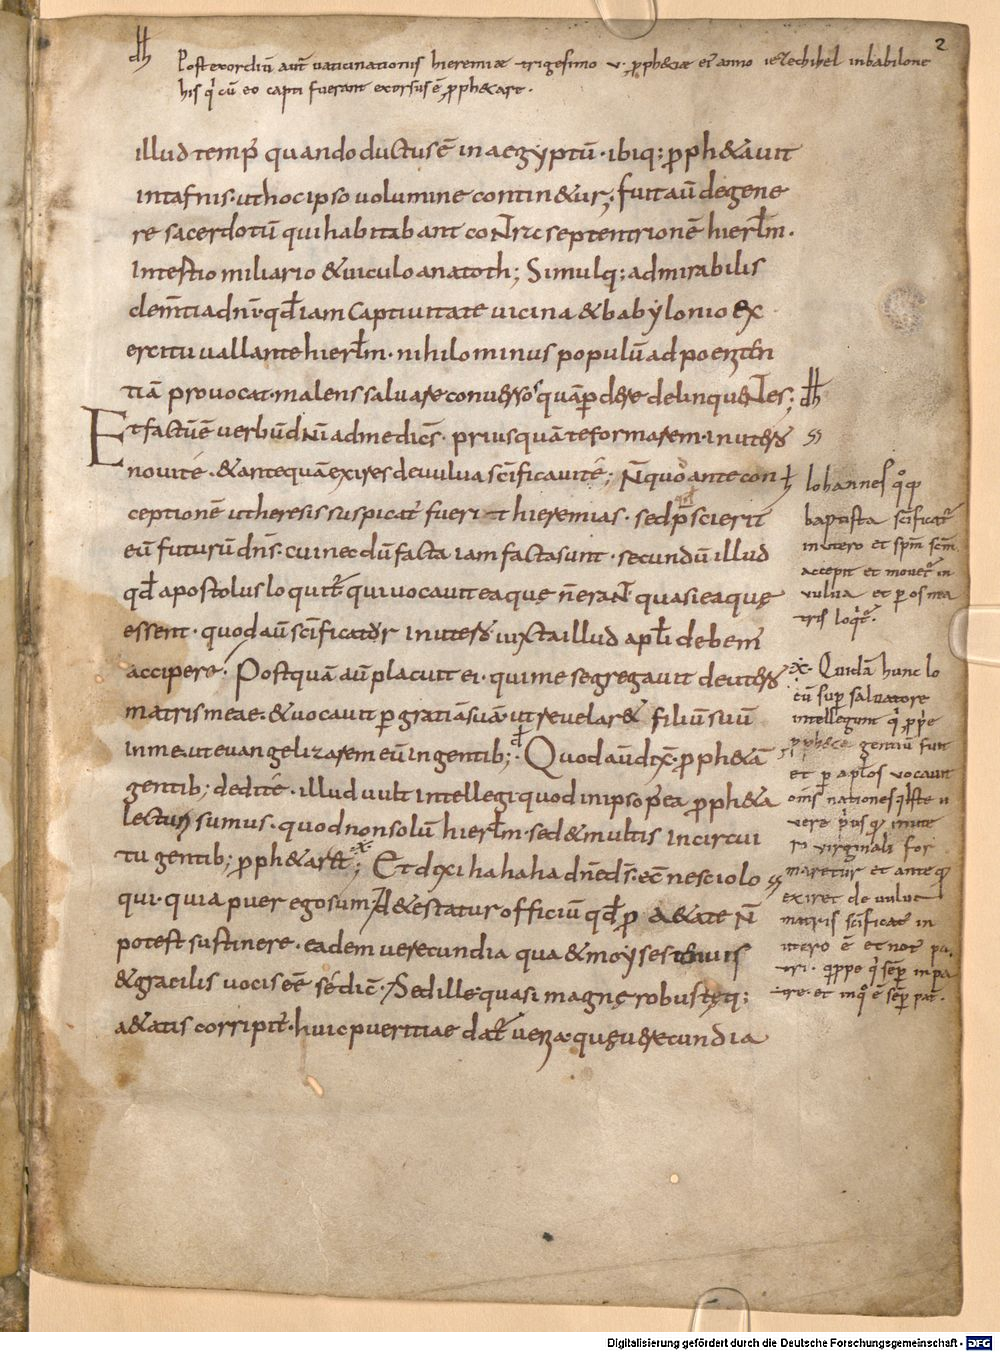 2
Post exordiū aut̄ vaticinationis hieremiae trigesimo v. ꝓph&iae ei᷒ anno iezechihel in babilone
his q̇ cū eo capti fuerant exorsus ē ꝓph&are.
illud temp᷒ quando ductus ē in aegyptū · ibiq; ꝓph&auit
in tafnis · ut hoc ipso uolumine contin&ur; fuit aū de gene
re sacerdotū qui habitabant coNtra septentrionē hierl̄m ·
In tertio miliario & uiculo anatoth; Simulq; admirabilis
clem̄tia dn̄i · qđ iam captiuitate uicina & babylonio ex
ercitu uallante hierl̄m · nihilominus populū ad poeniten
tiā prouocat · malens saluare conuersos quā ꝑdere delinqueNtes;
Et factū ē uerbū dNī ad me dicēs · priusquā te formarem · in utero
noui te · & antequā exires de uulua sc̄ificaui te; N̄ quo ante con
ceptionē ut heresis suspicat᷒ fuerit hieremias · sed p̄scierit
eū futurū dn̄s · cui necdū facta iam facta sunt · secundū illud
qđ apostolus loquit᷒ · qui uocauit ea quę n̄ eraNt quasi ea quę
essent · quod aū sc̄ificatur in utero iuxta illud apl̄i debem᷒
accipere · Postquā aū placuit ei · qui me segregauit de utero
matris meae · & uocauit ꝑ gratiā suā · ut reuelar& filiū suū
in me · ut euangelizarem eū in gentib; · Quod aū dix̄ · ꝓph&ā
gentib; dedi te · illud uult intellegi quod in ipso postea ꝓph&a
lecturi sumus · quod non solū hierl̄m · sed & multis in circui
tu gentib; ꝓph&arit; Et dixi ha ha ha dn̄e ds̄ · ecc̄ nescio lo
qui · quia puer ego sum · D&estatur officiū qđ ꝓ a&ate n̄
potest sustinere · eadem uerecundia qua & moyses tenuis
& gracilis uocis eē se dic̄ · Sed ille quasi magnę robustęq;
a&atis corripit᷒ · huic pueritiae dat᷒ uenia · quę uerecundia
Iohannes q°q;
baptista sc̄ificat᷒
in utero et sp̄m sc̄m
accepit et mouet᷒ in
vulua et ꝑ os ma
tris loq̇t᷒.
Quidā hunc lo
cū sup̄ saluatore
intellegunt q̇ ꝓprie
ꝓph&a gentiū fuit
et ꝑ aplo̅s vocauit
om̄s nationes
in vtero virginali for
maretur et anteq̄
exiret de uulua
matris sc̄ificat᷒ in
utero ē et not᷒ pa
tri. quippe q̇ semꝑ in pa
tre. et in q̊ ē semꝑ pat᷒.
Digitalisierung gefördert durch die Deutsche Forschungsgemeinschaft - DFG